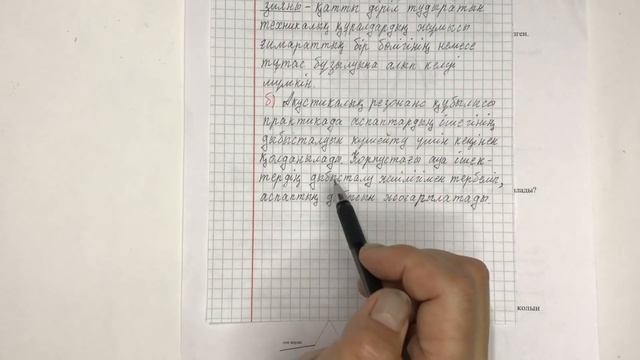 зияны - қатты діріл тудыратын
техникалық құралдардың жұмысы
ғимараттың бір бөлігінің немесе
тұтас бұзылуына алып келуі
мүмкін.
б) Акустикалық резонанс құбылысы
практикада аспаптардың ішегінің
дыбысталуын күшейту үшін кеңінен
қолданылады. Корпустағы ауа ішек-
тердің дыбысталу жиілігімен тербеліп,
аспаптың жоғарылатады
ген.
лады?
қолын